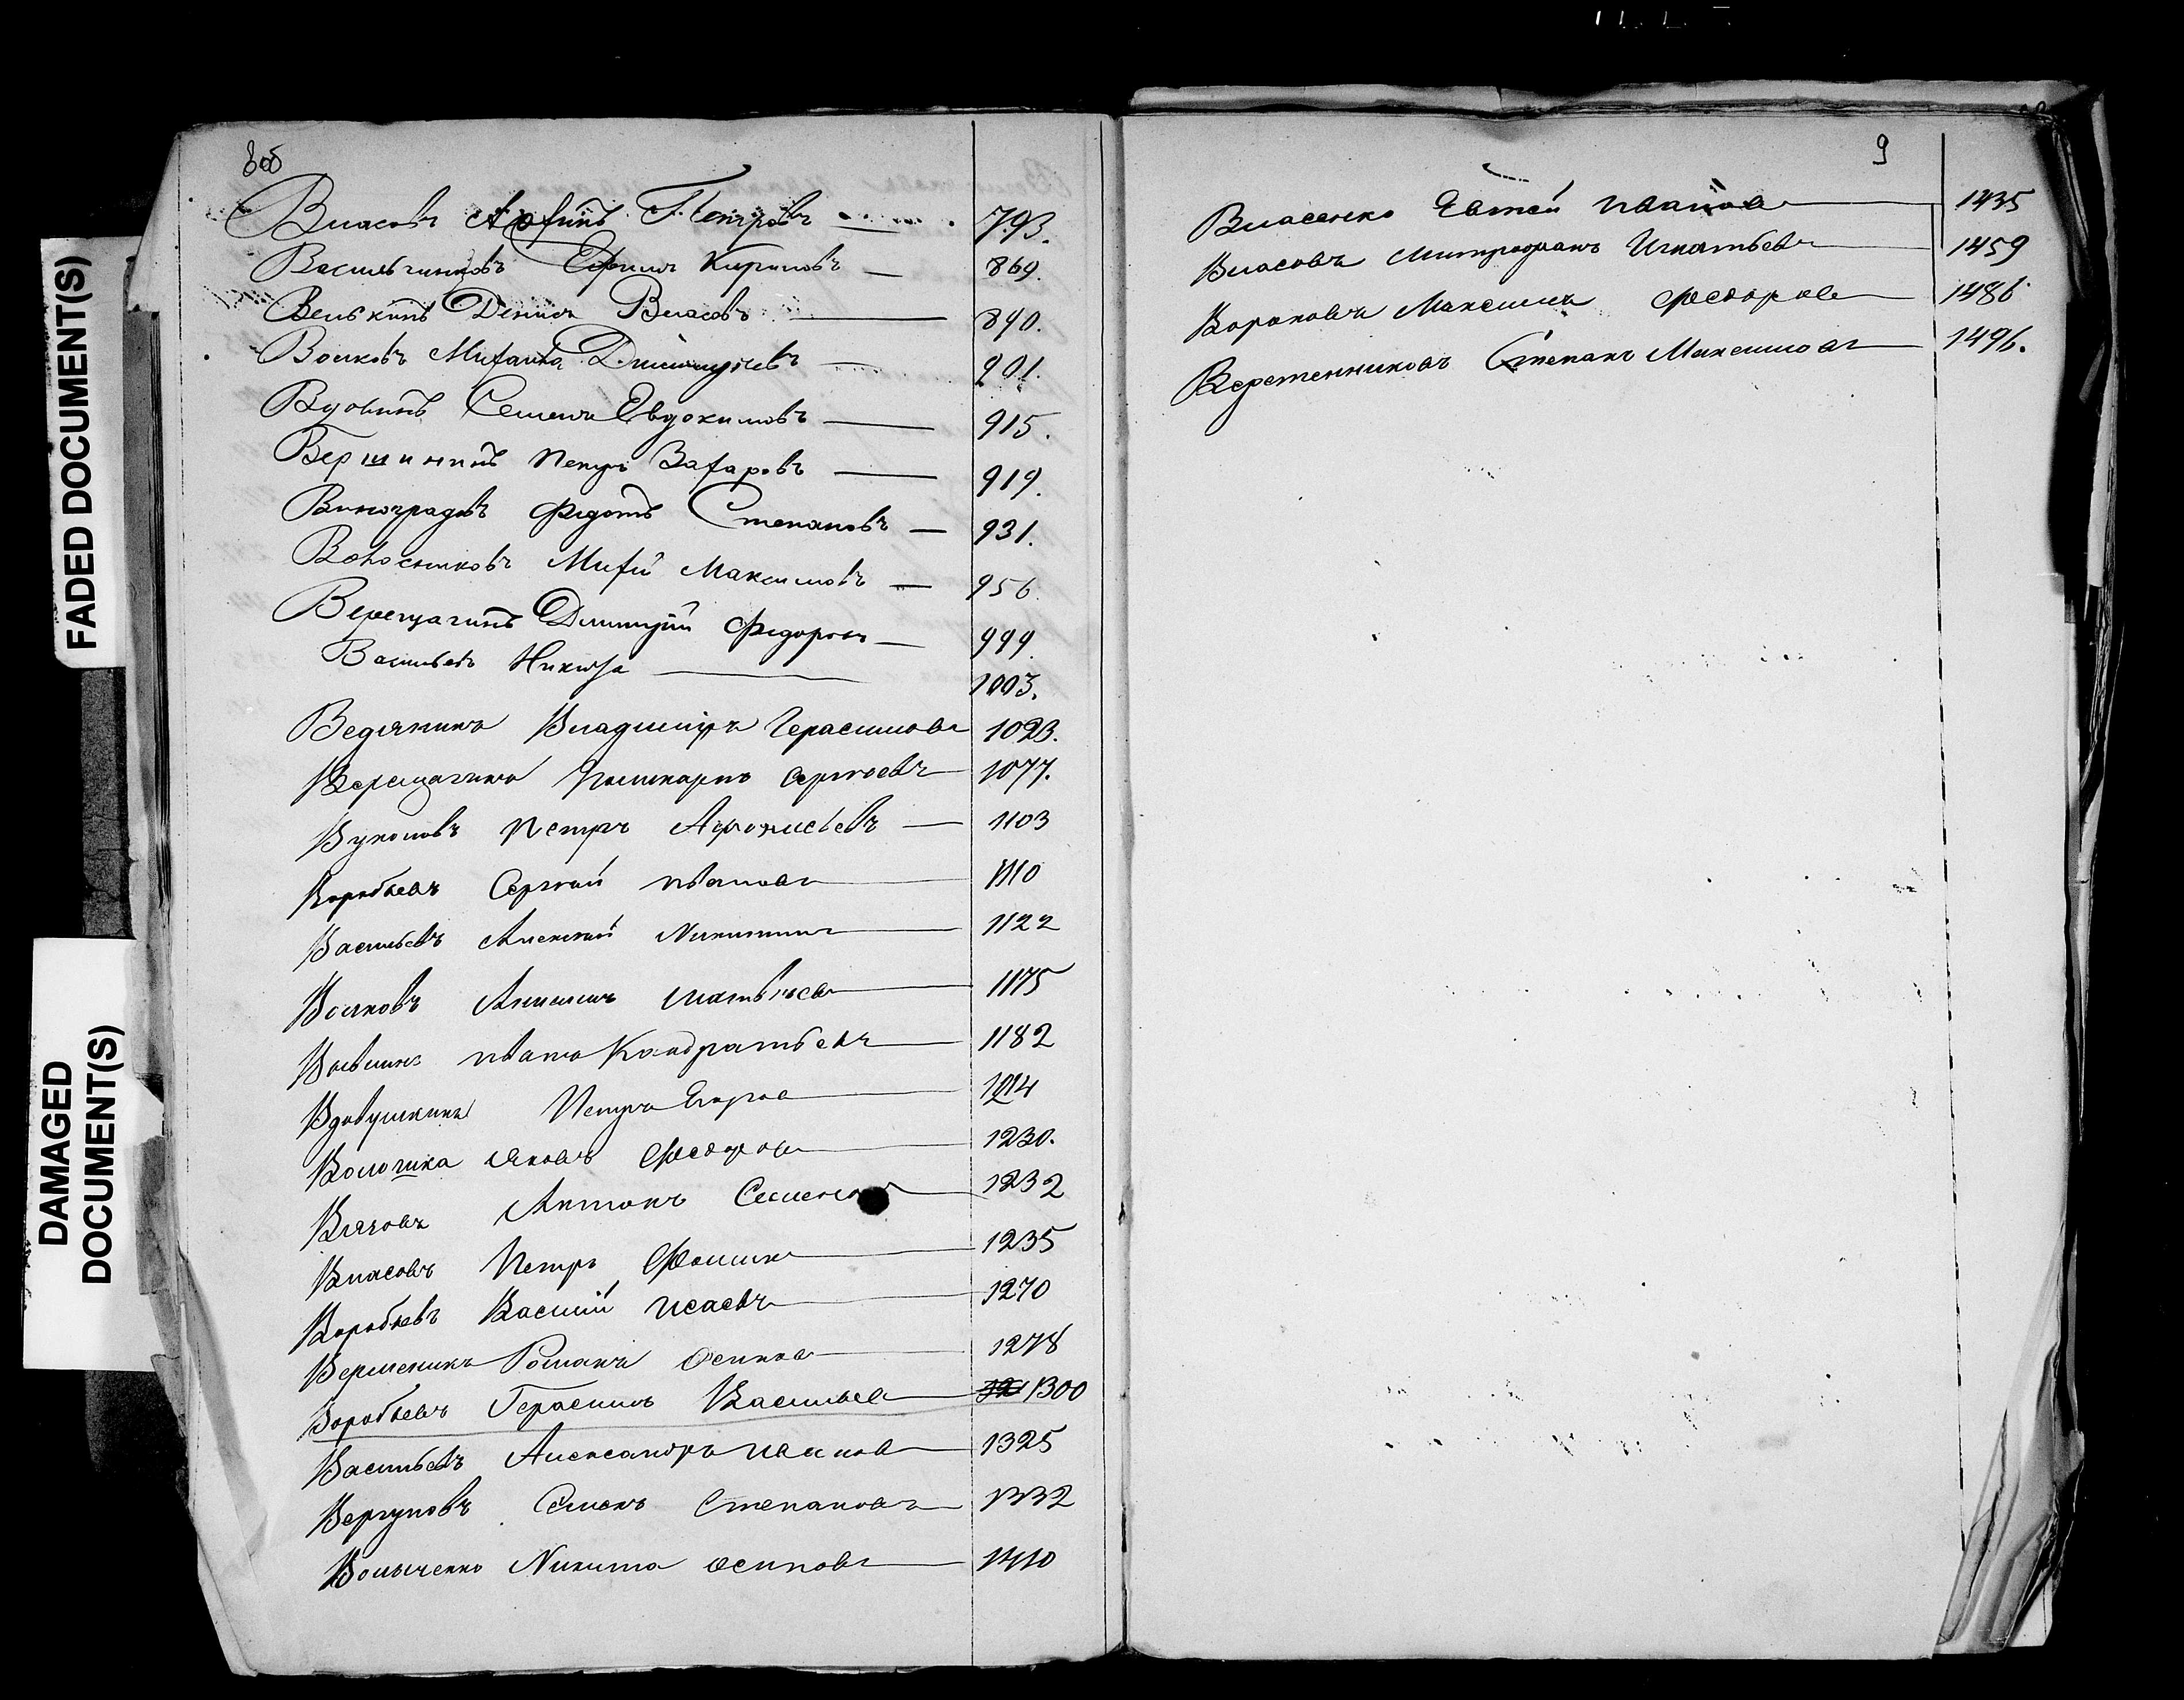 FADED DOCUMENT(S)
DAMAGED
DOCUMENT(S)
8об
Власовъ Петровъ 793.
Васильчиковъ Ефимъ Кириловъ 869.
Велькинъ Денисъ Власовъ 890.
Волковъ Михаила Дмитріевъ 901.
Вдовинъ Семенъ Евдокимовъ 915.
Вершининъ Петръ Захаровъ 919.
Виноградовъ Федотъ Степановъ 931.
Волосниковъ Михѣй Максимовъ 956.
Верещагинъ Дмитрій Федоровъ 999.
Васильевъ Никита 1003.
Ведякинъ Владиміръ Герасимовъ 1023.
Верещагинъ Поликарпъ Сергѣевъ 1077.
Вуколовъ Петръ Афонасьевъ 1103
Воробьевъ Сергѣй Ивановъ 1110
Васильевъ Алексѣй Никитинъ 1122
Волковъ Анисимъ Матвѣевъ 1175
Иванъ Кондратьевъ 1182
Вдовушкинъ Петръ Егоров 1214
Яковъ Федоровъ 1230.
Антонъ Семеновъ 1232
Власовъ Петръ Фоминъ 1235
Воробьевъ Василій Исаевъ 1270
Вершенинъ Романъ Осиповъ 1278
Воробьевъ Герасимъ Васильев 1300
Васильевъ Александръ Иванов 1325
Вергуновъ Семенъ Степановъ 1332
Волыченко Никита Осиповъ 1410
9
Власенко Евтей Иванов 1435
Власовъ Митрофанъ Игнатьевъ 1459
Вороновъ Максимъ Федоров 1486
Веретенниковъ Степанъ Максимовъ 1496.